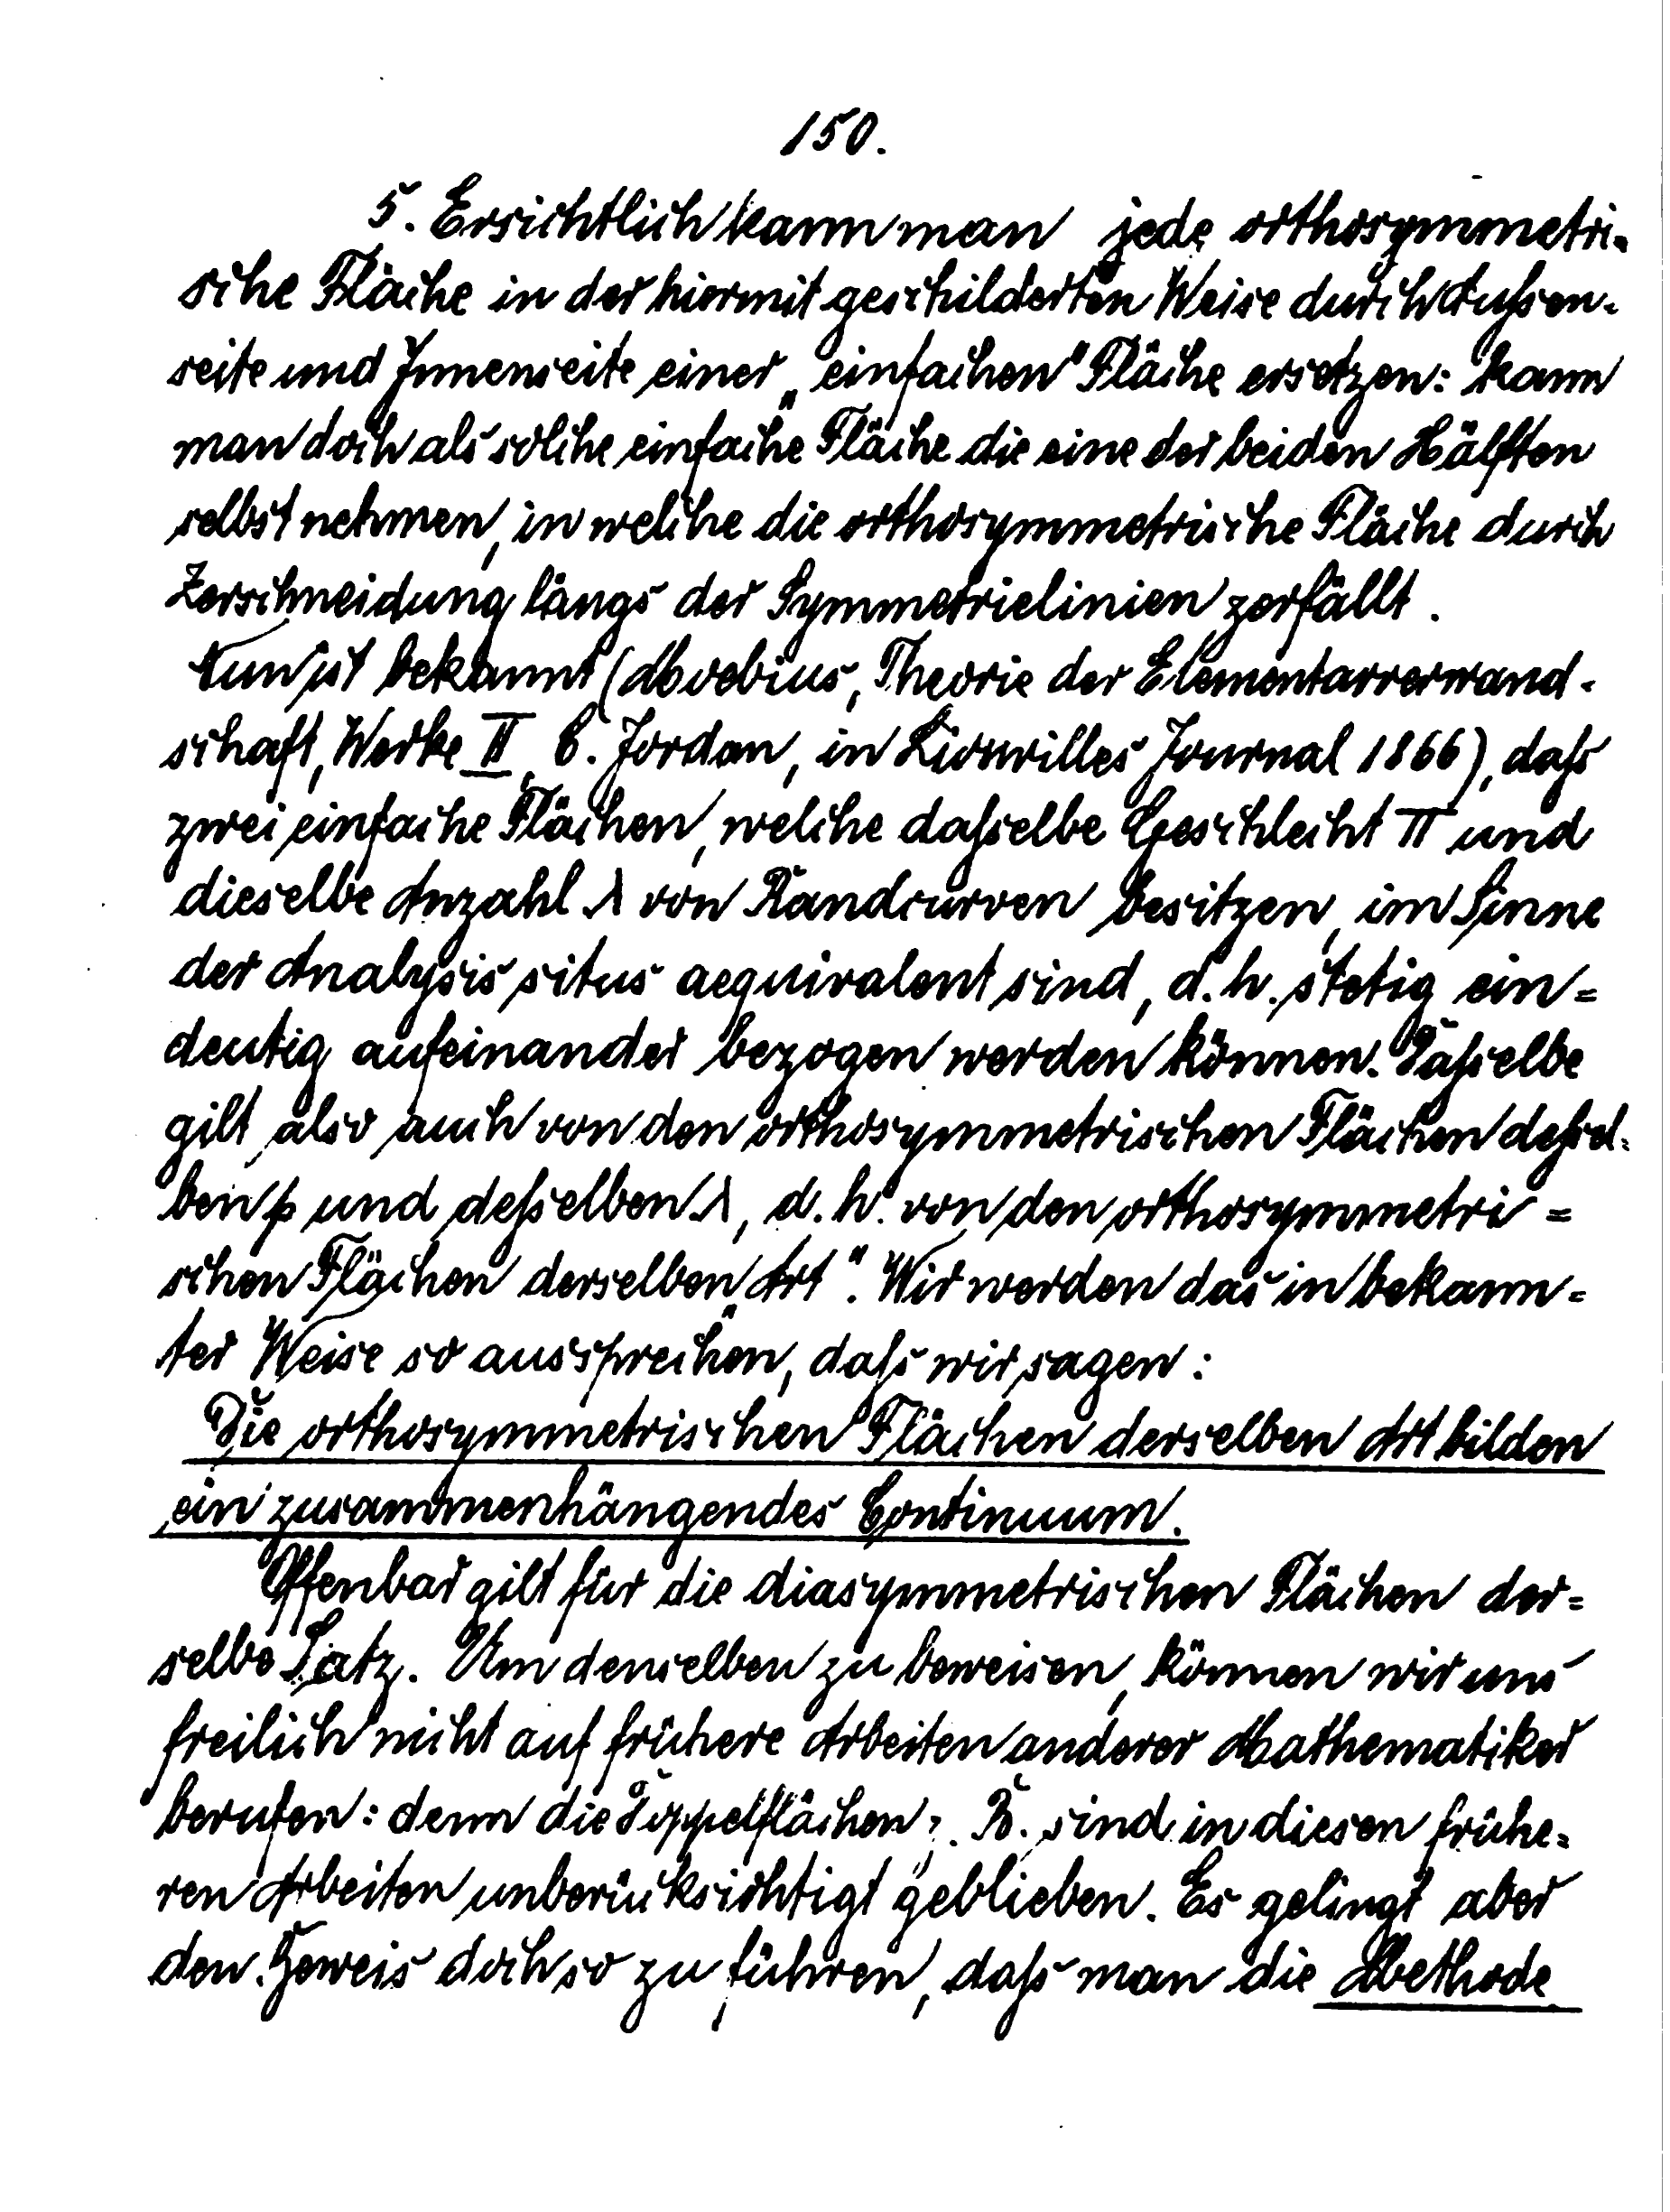 150.
5. Ersichtlich kann man jede orthosymmetri-
sche Fläche in der hiermit geschilderten Weise durch Außen-
seite und Innenseite einer „einfachen" Fläche ersetzen: kann
man doch als solche einfache Fläche die eine der beiden Hälften
selbst nehmen, in welche die orthosymmetrische Fläche durch
Zerschneidung längs der Symmetrielinien zerfällt.
Nun ist bekannt (Moebius, Theorie der Elementarverwand-
schaft, Werke II, C. Jordan, in Liouvilles Journal 1866), daß
zwei einfache Flächen, welche daßelbe Geschlecht π und
dieselbe Anzahl λ von Randcurven besitzen, im Sinne
der Analysis situs aequivalent sind, d. h. stetig ein=
deutig aufeinander bezogen werden können. Daßelbe
gilt also auch von den orthosymmetrischen Flächen deßel-
ben p und deßelben λ, d. h. von den orthosymmetri=
schen Flächen derselben „Art". Wir werden das in bekann=
ter Weise so aussprechen, daß wir sagen:
Die orthosymmetrischen Flächen derselben Art bilden
ein zusammenhängendes Continuum.
Offenbar gilt für die diasymmetrischen Flächen der=
selbe Satz. Um denselben zu beweisen, können wir uns
freilich nicht auf frühere Arbeiten anderer Mathematiker
berufen: denn die Doppelflächen z. B. sind in diesen frühe=
ren Arbeiten unberücksichtigt geblieben. Es gelingt aber
den Beweis doch so zu führen, daß man die Methode